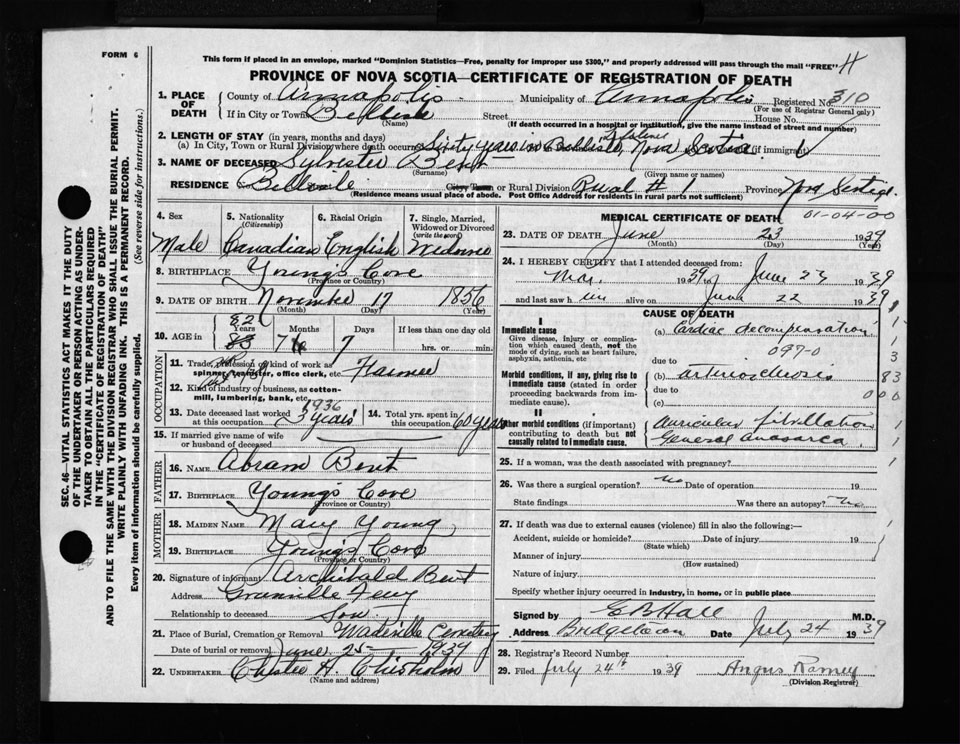 FORM 6
This form if placed in an envelope, marked "Dominion Statistics—Free, penalty for improper use $300," and properly addressed will pass through the mail "FREE" H
PROVINCE OF NOVA SCOTIA—CERTIFICATE OF REGISTRATION OF DEATH
1. PLACE OF DEATH County of Annapolis Municipality of Annapolis Registered No. 310
(For use of Registrar General only)
If in City or Town Bellisle (Name) Street House No.
(If death occurred in a hospital or institution, give the name instead of street and number)
2. LENGTH OF STAY (in years, months and days)
(a) In City, Town or Rural Division where death occurred Sixty years in Nova Scotia (if immigrant)
3. NAME OF DECEASED Sylvester Bent
(Surname) (Given name or names)
RESIDENCE City, Town or Rural Division Rural # 1 Province Nova Scotia
(Residence means usual place of abode. Post Office Address for residents in rural parts not sufficient)
4. Sex Male
5. Nationality (Citizenship) Canadian
6. Racial Origin English
7. Single, Married, Widowed or Divorced (write the word) Widowed
8. BIRTHPLACE Young's Cove
(Province or Country)
9. DATE OF BIRTH November 17 1856
(Month) (Day) (Year)
10. AGE in 82 83 Years 7 Months 7 Days If less than one day old hrs. or min.
OCCUPATION
11. Trade, profession or kind of work as spinner, teamster, office clerk, etc. Farmer
12. Kind of industry or business, as cotton-mill, lumbering, bank, etc.
13. Date deceased last worked at this occupation 1936 3 years
14. Total yrs. spent in this occupation 60 years
15. If married give name of wife or husband of deceased
FATHER
16. Name Abram Bent
17. Birthplace Young's Cove
(Province or Country)
MOTHER
18. Maiden Name Mary Young
19. Birthplace Young's Cove
(Province or Country)
20. Signature of informant Archibald Bent
Address Granville Ferry
Relationship to deceased Son
21. Place of Burial, Cremation or Removal Wadeville Cemetery
Date of burial or removal June 25 1939
22. UNDERTAKER H. Chisholm
(Name and address)
MEDICAL CERTIFICATE OF DEATH
01-04-00
23. DATE OF DEATH June 23 1939
(Month) (Day) (Year)
24. I HEREBY CERTIFY that I attended deceased from:
Mar. 1939 to June 23 1939
and last saw him alive on June 22 1939
CAUSE OF DEATH
I
Immediate cause
Give disease, injury or complication which caused death, not the mode of dying, such as heart failure, asphyxia, asthenia, etc
(a) Cardiac decompensation
097-0
due to
Morbid conditions, if any, giving rise to immediate cause (stated in order proceeding backwards from immediate cause).
(b) arteriosclerosis
due to
(c)
II
Other morbid conditions (if important) contributing to death but not causally related to immediate cause.
Auricular fibrillation
General anasarca
25. If a woman, was the death associated with pregnancy?
26. Was there a surgical operation? No Date of operation 19
State findings Was there an autopsy? No
27. If death was due to external causes (violence) fill in also the following:—
Accident, suicide or homicide? Date of injury 19
(State which)
Manner of injury
(How sustained)
Nature of injury
Specify whether injury occurred in industry, in home, or in public place
Signed by E B Hall M.D.
Address Bridgetown Date July 24 1939
28. Registrar's Record Number
29. Filed July 24th 1939 Angus Ramey
(Division Registrar)
SEC. 46—VITAL STATISTICS ACT MAKES IT THE DUTY
OF THE UNDERTAKER OR PERSON ACTING AS UNDER-
TAKER TO OBTAIN ALL THE PARTICULARS REQUIRED
IN THE "CERTIFICATE OF REGISTRATION OF DEATH"
AND TO FILE THE SAME WITH THE DIVISION REGISTRAR WHO SHALL ISSUE THE BURIAL PERMIT.
WRITE PLAINLY WITH UNFADING INK. THIS IS A PERMANENT RECORD.
Every item of information should be carefully supplied. (See reverse side for instructions.)